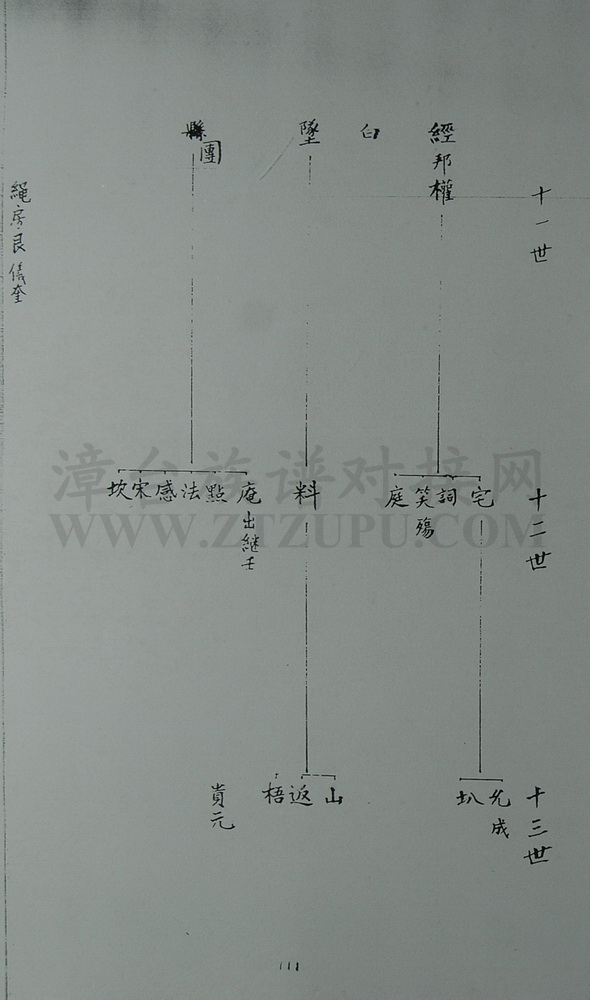 十一世
經邦權
白
墜
縣
團
十二世
宅
詞
笑殤
庭
料
庵出繼壬
點
法
感
宋
坎
十三世
允成
山
返
梧
貴元
繩房良儀奎
111
漳台族谱对接网
WWW.ZTZUPU.COM